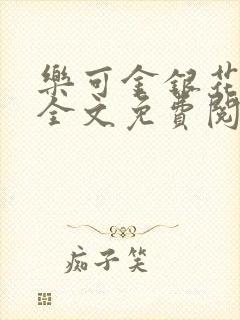 樂可金銀花
全文免費閱
痴子笑